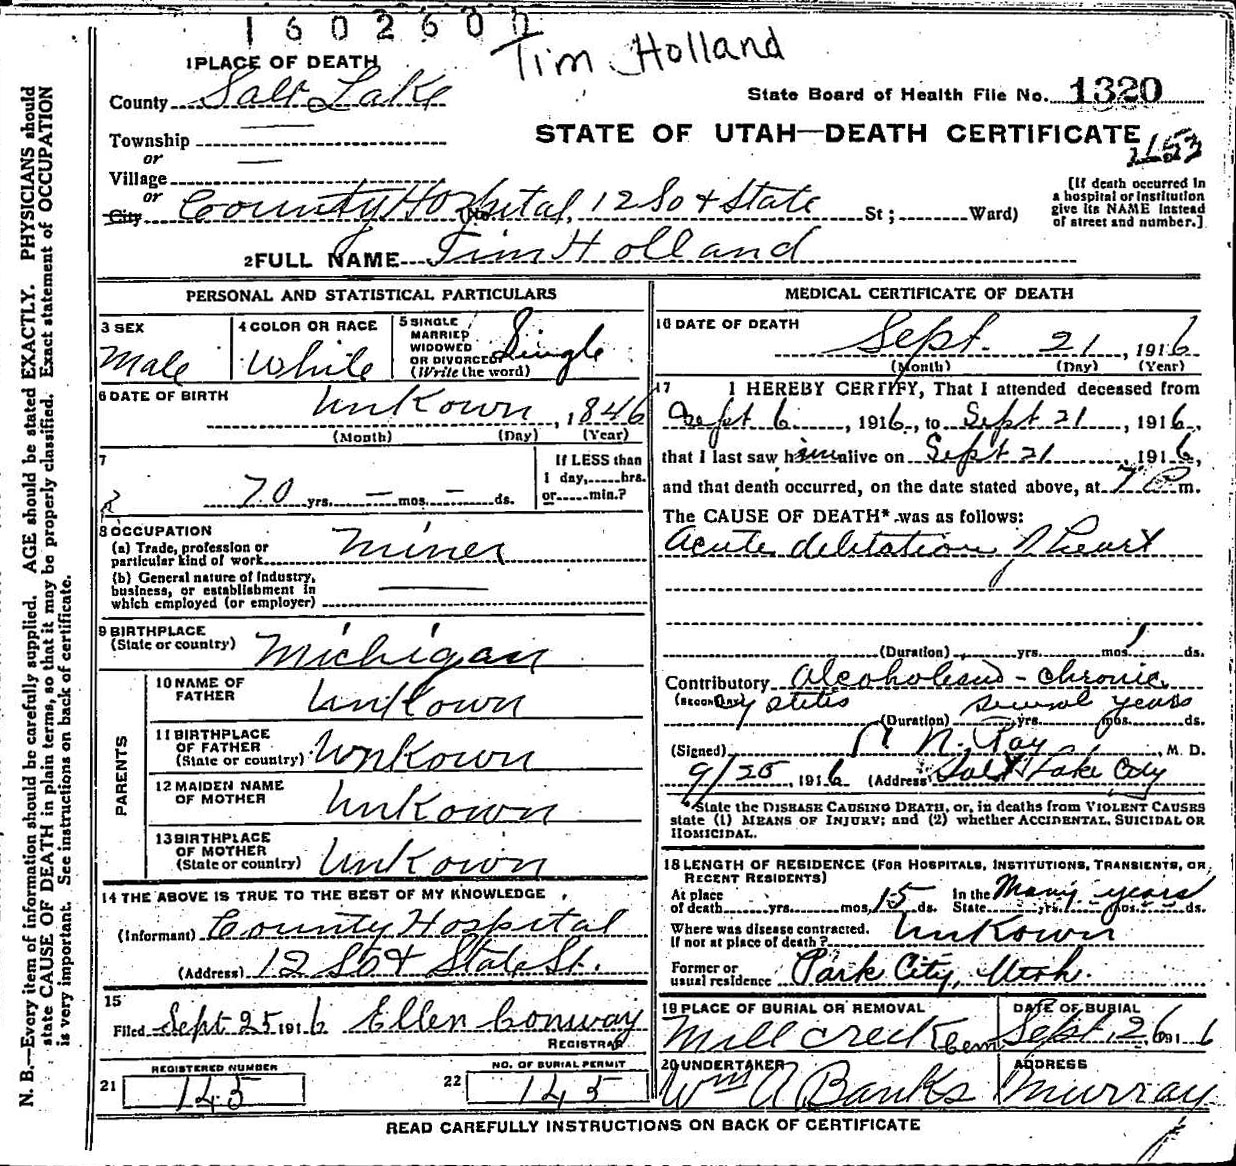 1602600
Tim Holland
1 PLACE OF DEATH
County Salt Lake
State Board of Health File No. 1320
Township
or
STATE OF UTAH—DEATH CERTIFICATE
2153
Village
or
City County Hospital, 12 So & State St; Ward)
[If death occurred in
a hospital or institution
give its NAME instead
of street and number.]
2 FULL NAME Tim Holland
PERSONAL AND STATISTICAL PARTICULARS
3 SEX
Male
4 COLOR OR RACE
White
5 SINGLE
MARRIED
WIDOWED
OR DIVORCED
(Write the word)
Single
6 DATE OF BIRTH
Unkown, 1846
(Month) (Day) (Year)
7
70 yrs. — mos. — ds.
If LESS than
1 day, hrs.
or min.?
8 OCCUPATION
(a) Trade, profession or
particular kind of work Miner
(b) General nature of Industry,
business, or establishment in
which employed (or employer)
9 BIRTHPLACE
(State or country) Michigan
PARENTS
10 NAME OF
FATHER Unkown
11 BIRTHPLACE
OF FATHER
(State or country) Unkown
12 MAIDEN NAME
OF MOTHER Unkown
13 BIRTHPLACE
OF MOTHER
(State or country) Unkown
14 THE ABOVE IS TRUE TO THE BEST OF MY KNOWLEDGE
(Informant) County Hospital
(Address) 12 So & State St.
15
Filed Sept 25 1916 Ellen Conway
REGISTRAR
REGISTERED NUMBER
21 145
NO. OF BURIAL PERMIT
22 145
MEDICAL CERTIFICATE OF DEATH
16 DATE OF DEATH
Sept. 21, 1916
(Month) (Day) (Year)
17 I HEREBY CERTIFY, That I attended deceased from
Sept 6, 1916, to Sept 21, 1916,
that I last saw him alive on Sept 21, 1916,
and that death occurred, on the date stated above, at 7 P m.
The CAUSE OF DEATH* was as follows:
Acute deletation of heart
(Duration) yrs. mos. 1 ds.
Contributory Alcoholism - chronic
(SECONDARY)
(Duration) several years yrs. mos. ds.
(Signed) N. Ray, M. D.
9/25, 1916 (Address) Salt Lake City
*State the DISEASE CAUSING DEATH, or, in deaths from VIOLENT CAUSES
state (1) MEANS OF INJURY; and (2) whether ACCIDENTAL, SUICIDAL OR
HOMICIDAL.
18 LENGTH OF RESIDENCE (FOR HOSPITALS, INSTITUTIONS, TRANSIENTS, OR
RECENT RESIDENTS)
At place
of death yrs. mos. 15 ds. In the
State Many years yrs. mos. ds.
Where was disease contracted,
If not at place of death? Unkown
Former or
usual residence Park City, Utah.
19 PLACE OF BURIAL OR REMOVAL
Mill Creek Cem
DATE OF BURIAL
Sept. 26, 1916
20 UNDERTAKER
Wm A Banks
ADDRESS
Murray
READ CAREFULLY INSTRUCTIONS ON BACK OF CERTIFICATE
N. B.—Every item of information should be carefully supplied. AGE should be stated EXACTLY. PHYSICIANS should
state CAUSE OF DEATH in plain terms, so that it may be properly classified. Exact statement of OCCUPATION
is very important. See instructions on back of certificate.